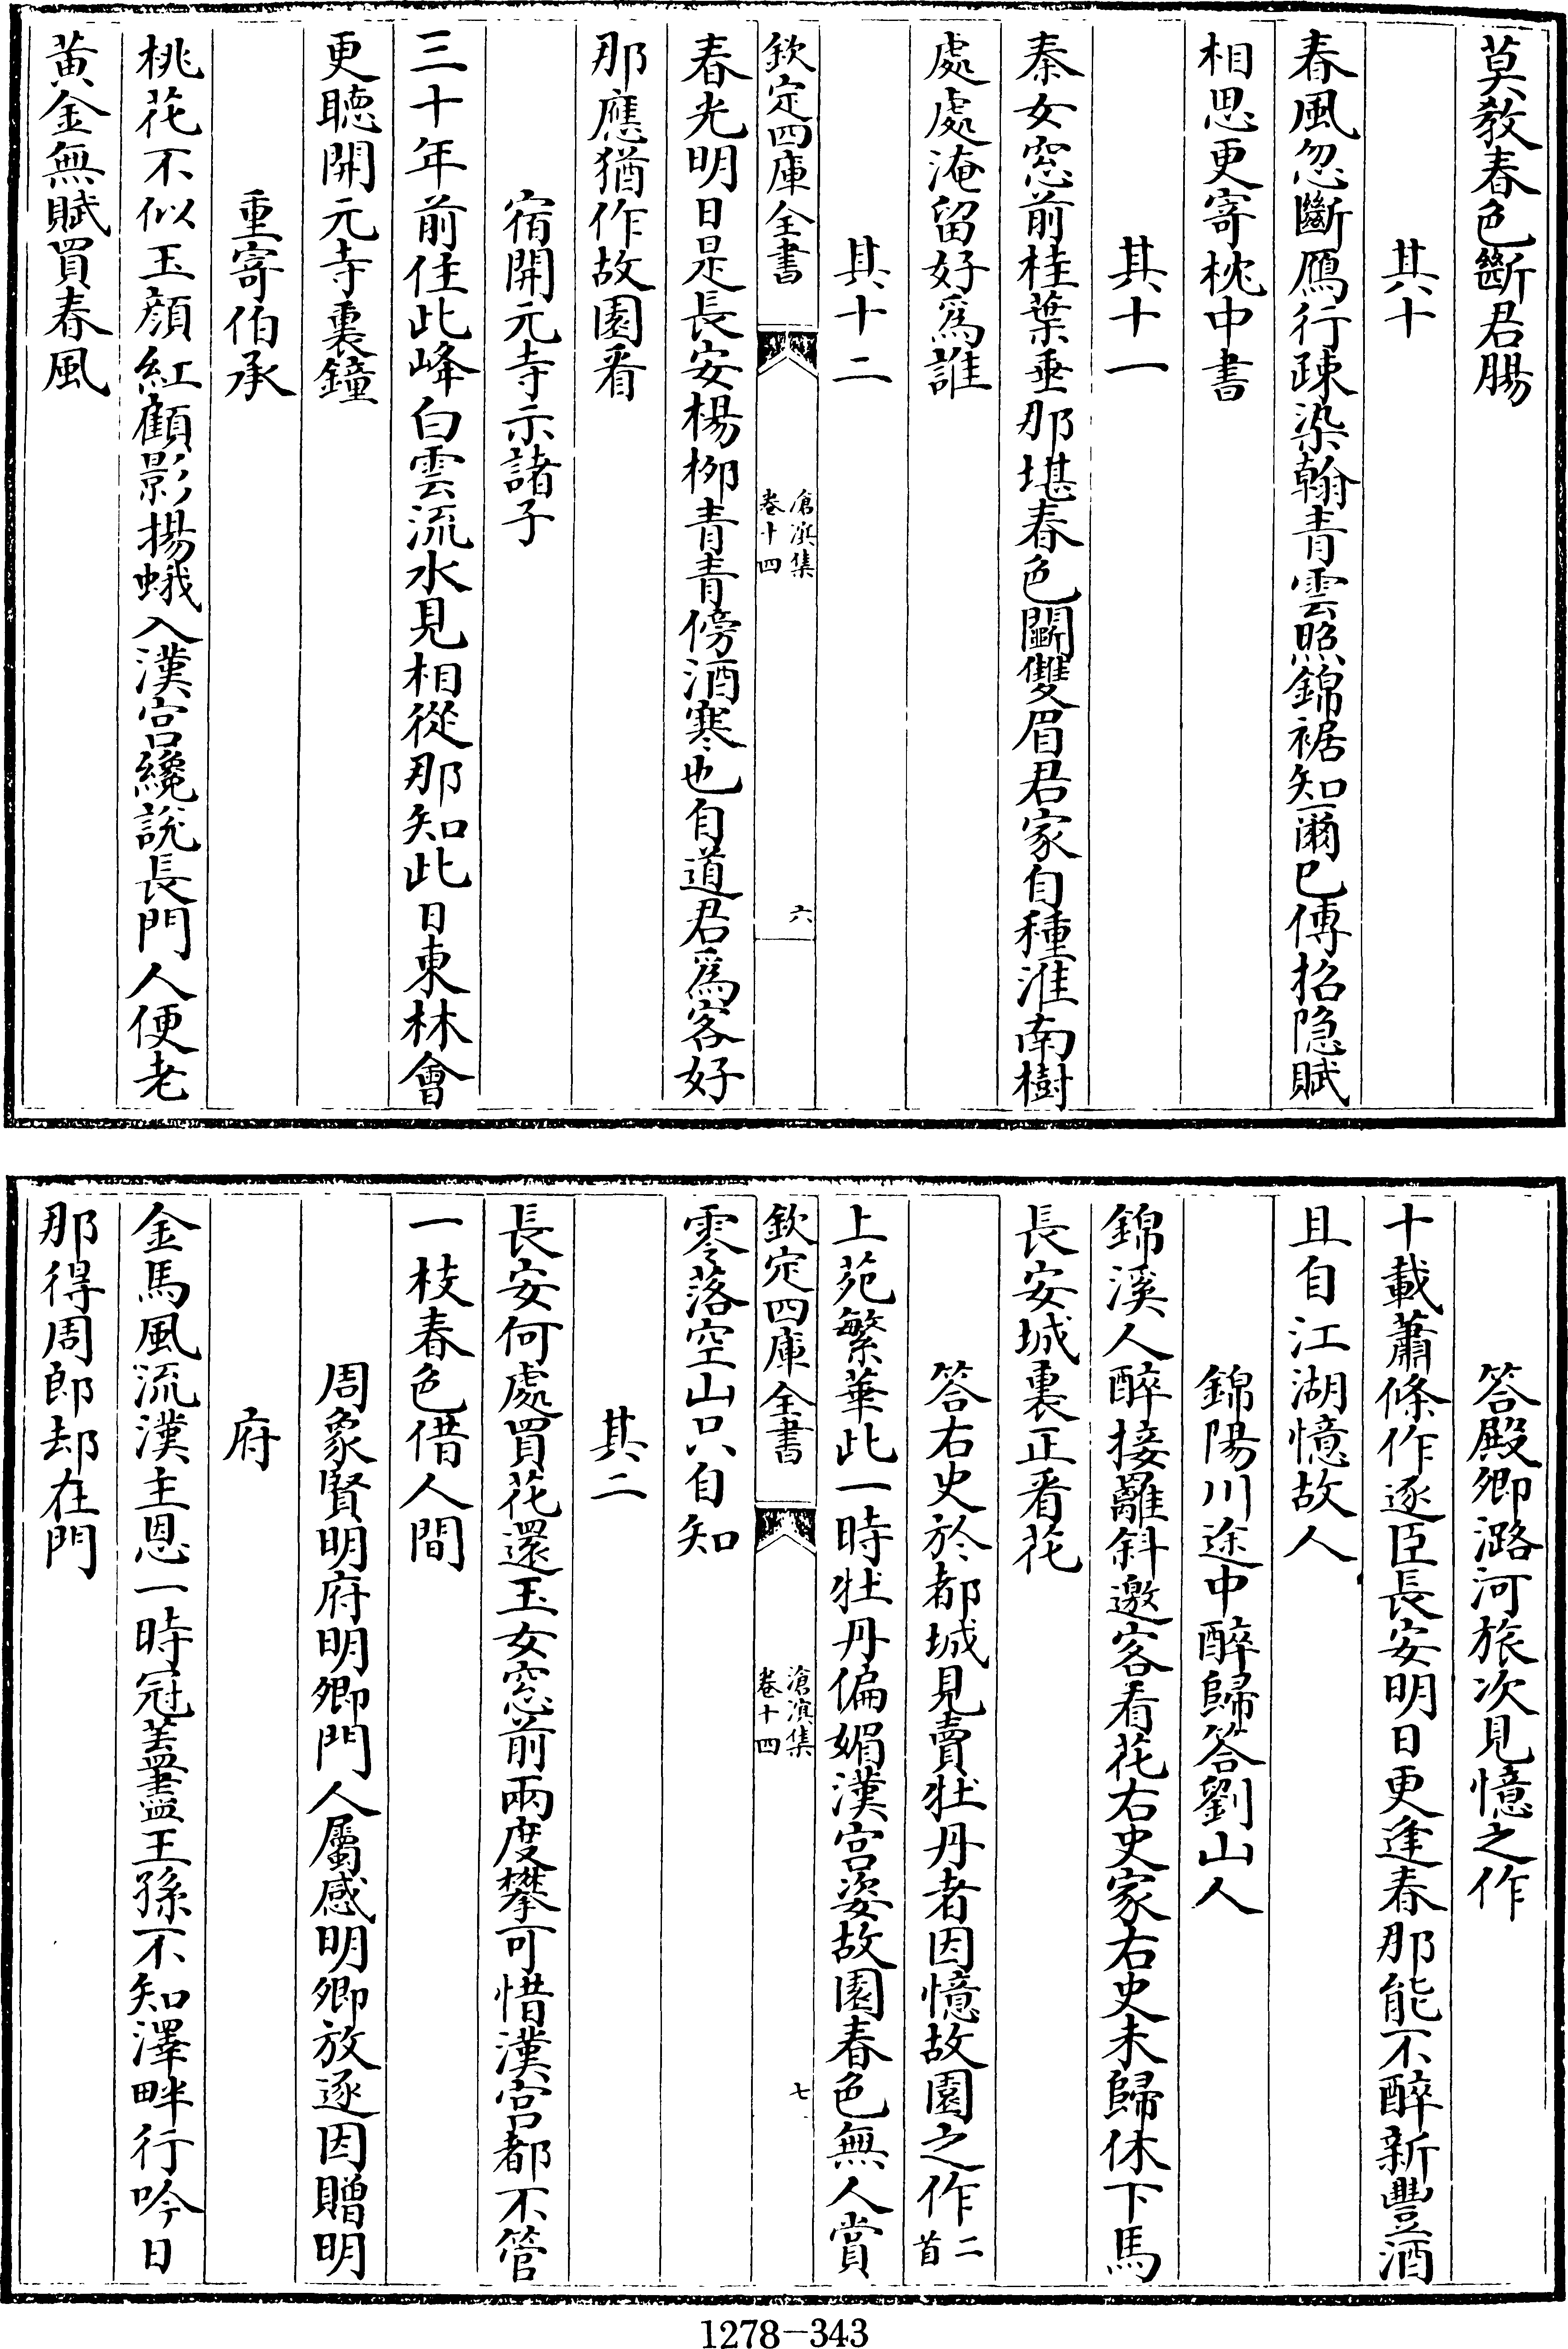 莫教春色斷君腸
其十
春風忽斷鴈行疎染翰青雲照錦裾知爾已傳招隠賦
相思更寄枕中書
其十一
秦女窓前桂葉垂那堪春色鬭雙眉君家自種淮南樹
處處淹留好爲誰
其十二
欽定四庫全書
滄溟集
卷十四
六
春光明日是長安楊柳青青傍酒寒也自道君爲客好
那應猶作故園看
宿開元寺示諸子
三十年前住此峰白雲流水見相從那知此日東林會
更聴開元寺裏鐘
重寄伯承
桃花不似玉顔紅顧影揚蛾入漢宫纔説長門人便老
黄金無賦買春風
答殿卿潞河旅次見憶之作
十載蕭條作逐臣長安明日更逢春那能不醉新豐酒
且自江湖憶故人
錦陽川途中醉歸答劉山人
錦溪人醉接䍦斜邀客看花右史家右史未歸休下馬
長安城裏正看花
答右史於都城見賣牡丹者因憶故園之作二首
上苑繁華此一時牡丹偏媚漢宫姿故園春色無人賞
欽定四庫全書
滄溟集
卷十四
七
零落空山只自知
其二
長安何處買花還玉女窓前兩度攀可惜漢宫都不管
一枝春色借人間
周象賢明府明卿門人屬感明卿放逐因贈明
府
金馬風流漢主恩一時冠葢盡王孫不知澤畔行吟日
那得周郎却在門
1278-343